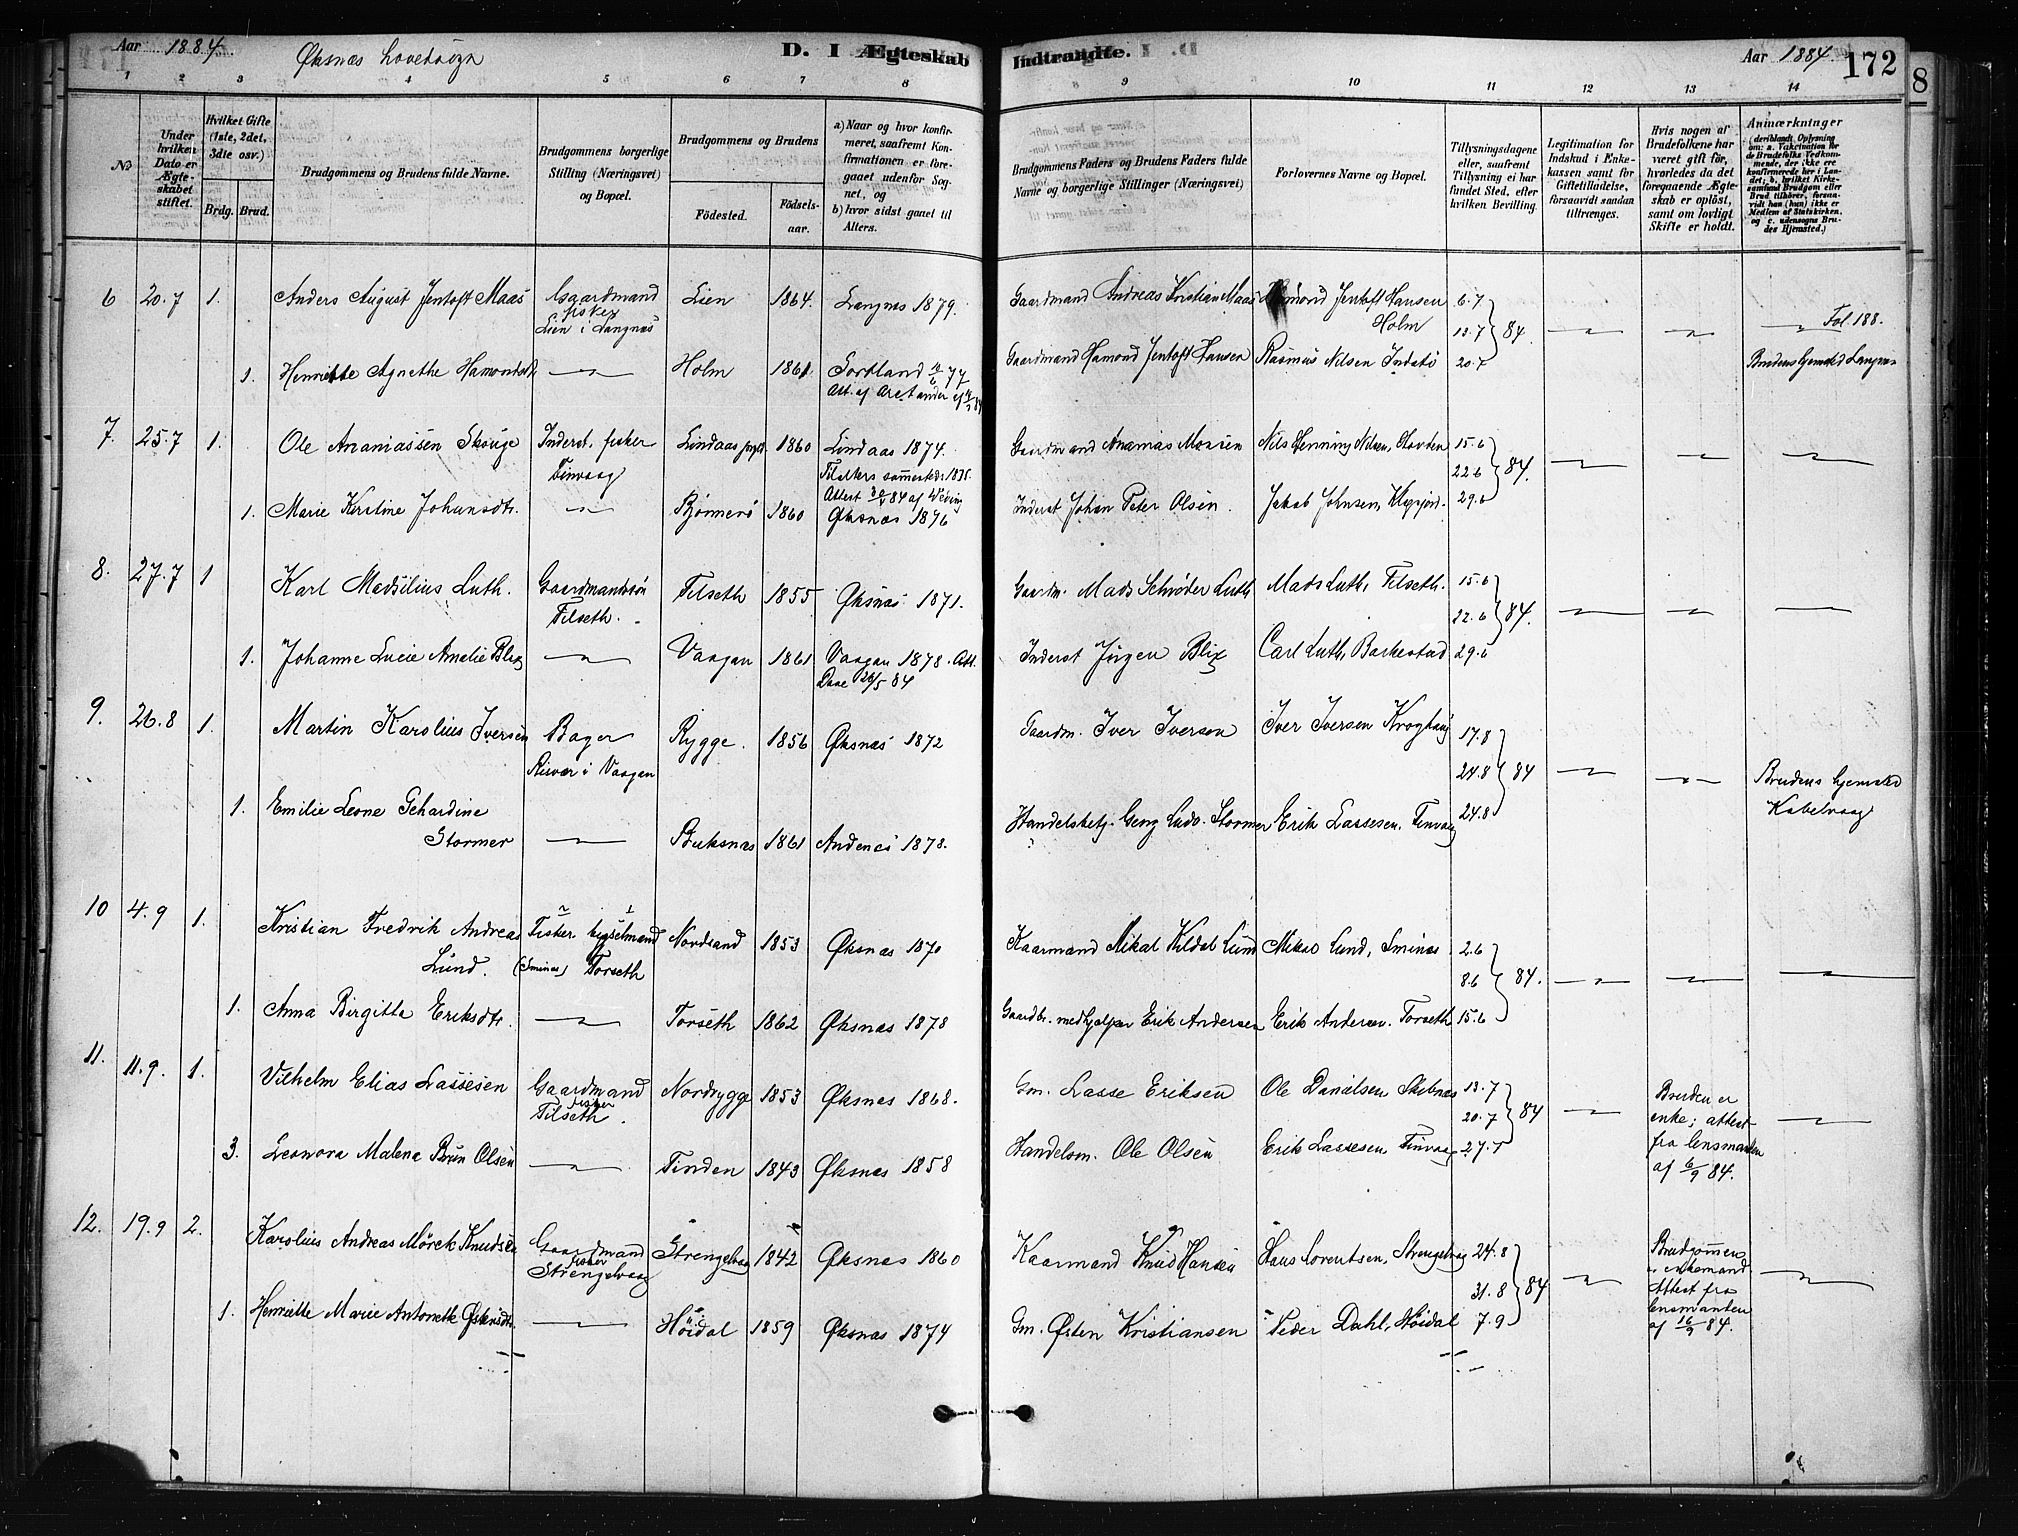 Aar 1884. Øksnæs Hovedsogn D. I Ægteskab Indtraadte. Aar 1884. 172
8
1 2 3 4 5 6 7 8 9 10 11 12 13 14
No
Under hvilken Dato er Ægteskabet stiftet.
Hvilket Gifte (1ste, 2det, 3die osv.)
Brdg. Brud.
Brudgommens og Brudens fulde Navne.
Brudgommens borgerlige Stilling (Næringsvei) og Bopæl.
Brudgommens og Brudens
Födested. Födsels-aar.
a) Naar og hvor konfirmeret, saafremt Konfirmationen er foregaaet udenfor Sognet, og
b) hvor sidst gaaet til Alters.
Brudgommens Faders og Brudens Faders fulde Navne og borgerlige Stillinger (Næringsvei)
Forlovernes Navne og Bopæl.
Tillysningsdagene eller, saafremt Tillysning ei har fundet Sted, efter hvilken Bevilling.
Legitimation for Indskud i Enkekassen samt for Giftetilladelse, forsaavidt saadan tiltrænges.
Hvis nogen af Brudefolkene har været gift før, hvorledes da det foregaaende Ægteskab er oplöst, samt om lovligt Skifte er holdt.
Anmærkninger (deriblandt Oplysning om: a. Vakcination for de Brudefolks Vedkommende, der ikke ere konfirmerede her i Landet; b. hvilket Kirkesamfund Brudgom eller Brud tilhører, forsaavidt han (hun) ikke er Medlem af Statskirken, og c. udensogns Brudes Hjemsted.)
6 20.7 1. Anders August Jentoft Maas Gaardmand fisker Lien i Langnæs Lien 1864. Langnes 1879. Gaardmand Andreas Kristian Maas Hamond Jentoft Hansen Holm 6.7 13.7 20.7 84. Fol. 188.
1. Henriette Agnethe Hamondsdt Holm 1861. Sortland 77 Att. af 84 Gaardmand Hamond Jentoft Hansen Rasmus Nilsen Brudens hjemsted Langnes
7. 25.7 1. Ole Ananiassen Skauge Inderst, fisker Tinvaag Lindaas prgld. 1860 Lindaas 1874. Attest 84 af Gaardmand Ananias Monsen Nils Henning Nilsen, Hovden 15.6 22.6 29.6 84.
1. Marie Kirstine Johansdtr. 1860 Øksnæs 1876 Inderst Johan Peter Olsen. Jakob Johnsen,
8. 27.7 1 Karl Madsilius Luth. Gaardmandssøn Tilseth. Tilseth 1855 Øksnæs 1871. Gaardm. Mads Schrøder Luth Mads Luth, Tilseth. 15.6 22.6 29.6 84.
1. Johanne Lucie Amelie Blix Vaagan 1861 Vaagan 1878. Att. 26/5 84 Inderst Jørgen Blix Carl Luth, Barkestad
9. 26.8 1. Martin Karolius Iversen Bager i Vaagan Rygge. 1856 Øksnæs 1872 Gaardm. Iver Iversen Iver Iversen 17.8 24.8 24.8 84 Brudens hjemsted Kabelvaag
1. Emilie Leone Gehardine Stormer Buksnæs 1861 Andenes 1878. Handelsbetj. Georg Ludv. Stormer Erik Lassesen, Tinvaag
10 4.9 1. Kristian Fredrik Andreas Lund. Fisker bygselmand (Sminæs) Torseth Nordsand 1853 Øksnæs 1870 Kaarmand Mikal Kildal Lund Mikal Lund, Sminæs 2.6 8.6 15.6 84.
1. Anna Birgitta Eriksdtr. Torseth 1862 Øksnæs 1878 Gaardbr. medhjelper Erik Andersen Erik Andersen. Torseth
11. 11.9. 1. Vilhelm Elias Lassesen Gaardmand fisker Tilseth. Nordrygge 1853 Øksnæs 1868. Gm. Lasse Eriksen Ole Danielsen Skibnæs 13.7 20.7 27.7 84 Bruden er enke; attest fra lensmanden af 6/9 84.
3. Leonora Malene Brun Olsen Tinden 1843 Øksnæs 1858 Handelsm. Ole Olsen Erik Lassesen Tinvaag
12. 19.9 2. Karolius Andreas Mörck Knudsen Gaardmand fisker Strengelvaag Strengelvaag 1842 Øksnæs 1860 Kaarmand Knud Hansen Hans Lorentsen, Strengelvaag 24.8 31.8 7.9 84 Brudgommen er enkemand Attest fra lensmanden af 16/9 84.
1. Henriette Marie Antonette Östensdtr. Höidal 1859 Øksnæs 1874 Gm. Östen Kristiansen Peder Dahl, Höidal